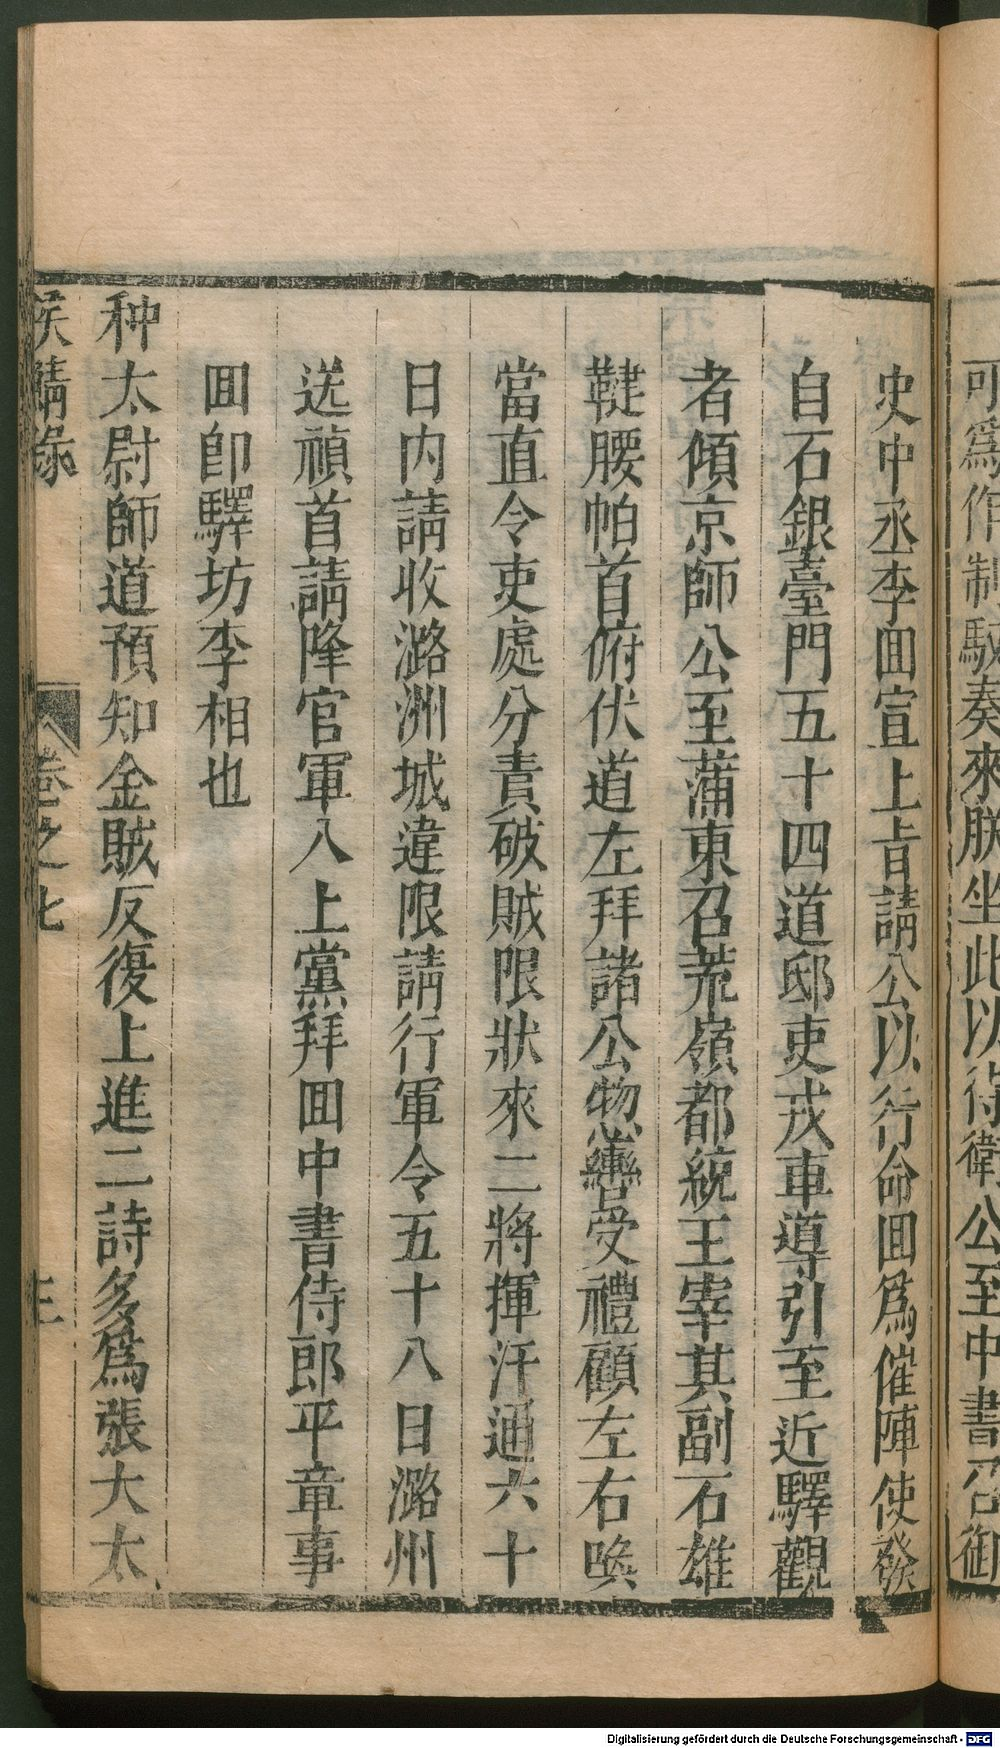 可爲作制馭奏來朕坐此以待衛公至中書召御
史中丞李囬宣上㫖請公以行命囬爲催陣使發
自石銀臺門五十四道邸吏戎車導引至近驛觀
者傾京師公至蒲東召荒嶺都統王宰其副石雄
鞬腰帕首俯伏道左拜諸公揔轡受禮顧左右喚
當直令吏處分責破賊限狀來二將揮汗通六十
日内請收潞洲城違限請行軍令五十八日潞州
送禎首請降官軍入上黨拜囬中書侍郎平章事
囬卽驛坊李相也
种太尉師道預知金賊反復上進二詩多爲張大太
侯鯖錄
卷之七
三
Digitalisierung gefördert durch die Deutsche Forschungsgemeinschaft - DFG